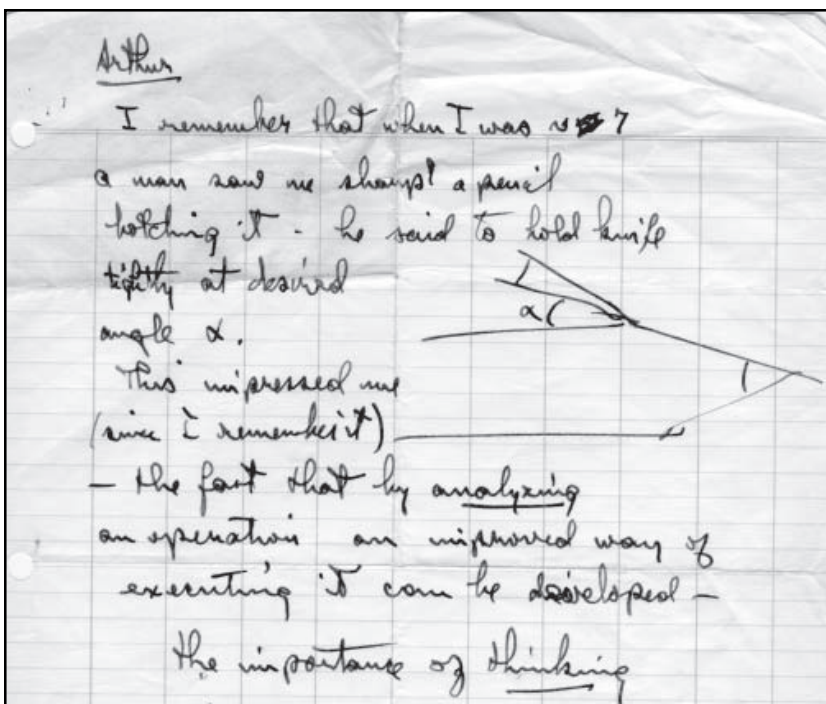 Arthur
I remember that when I was ~ 7
a man saw me sharp! a pencil
hotching it - he said to hold knife
tightly at desired
angle α.
α
This impressed me
(since I remember it)
- the fact that by analyzing
an operation an improved way of
executing it can be developed -
the importance of thinking